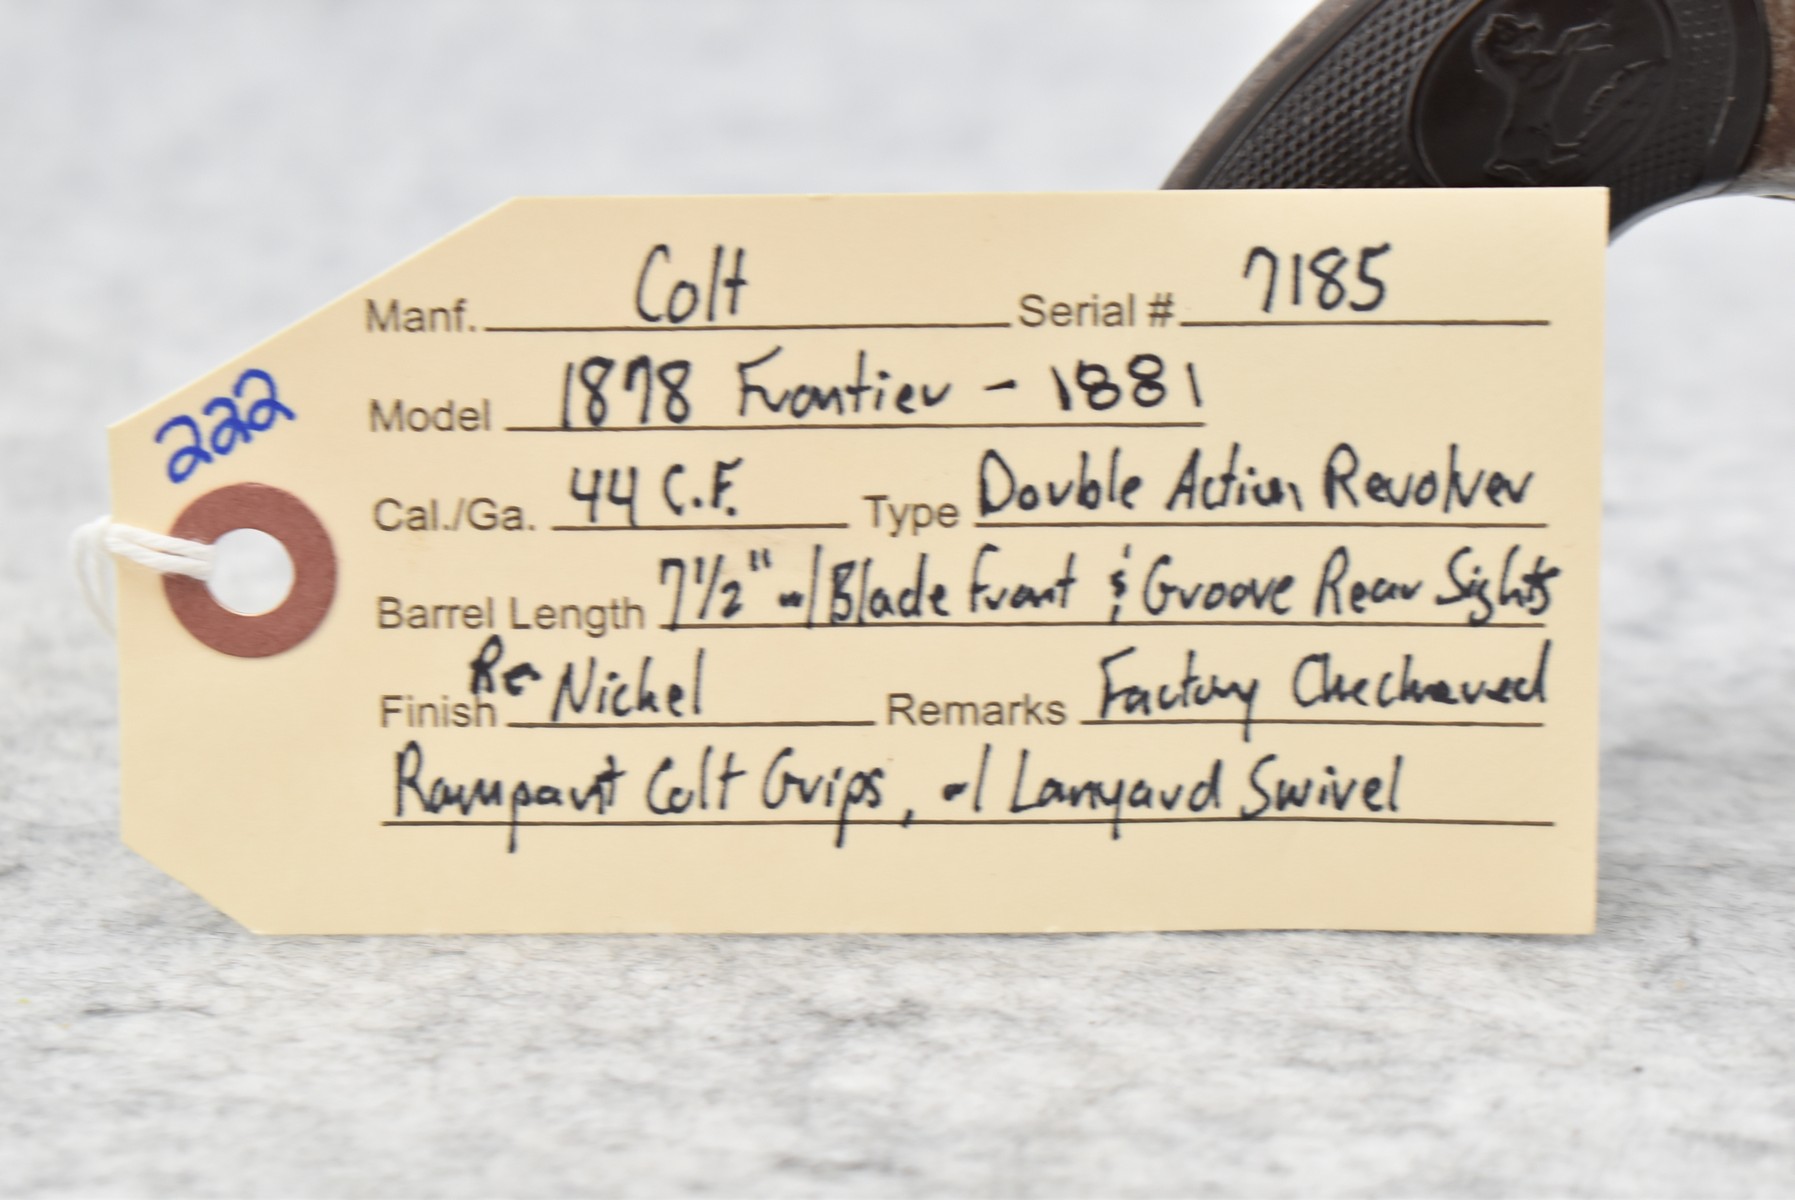 222
Manf. Colt Serial # 7185
Model 1878 Frontier - 1881
Cal./Ga. 44 C.F. Type Double Action Revolver
Barrel Length 7 1/2" w/ Blade Front & Groove Rear Sights
Finish Re-Nickel Remarks Factory Checkered
Rampant Colt Grips, w/ Lanyard Swivel